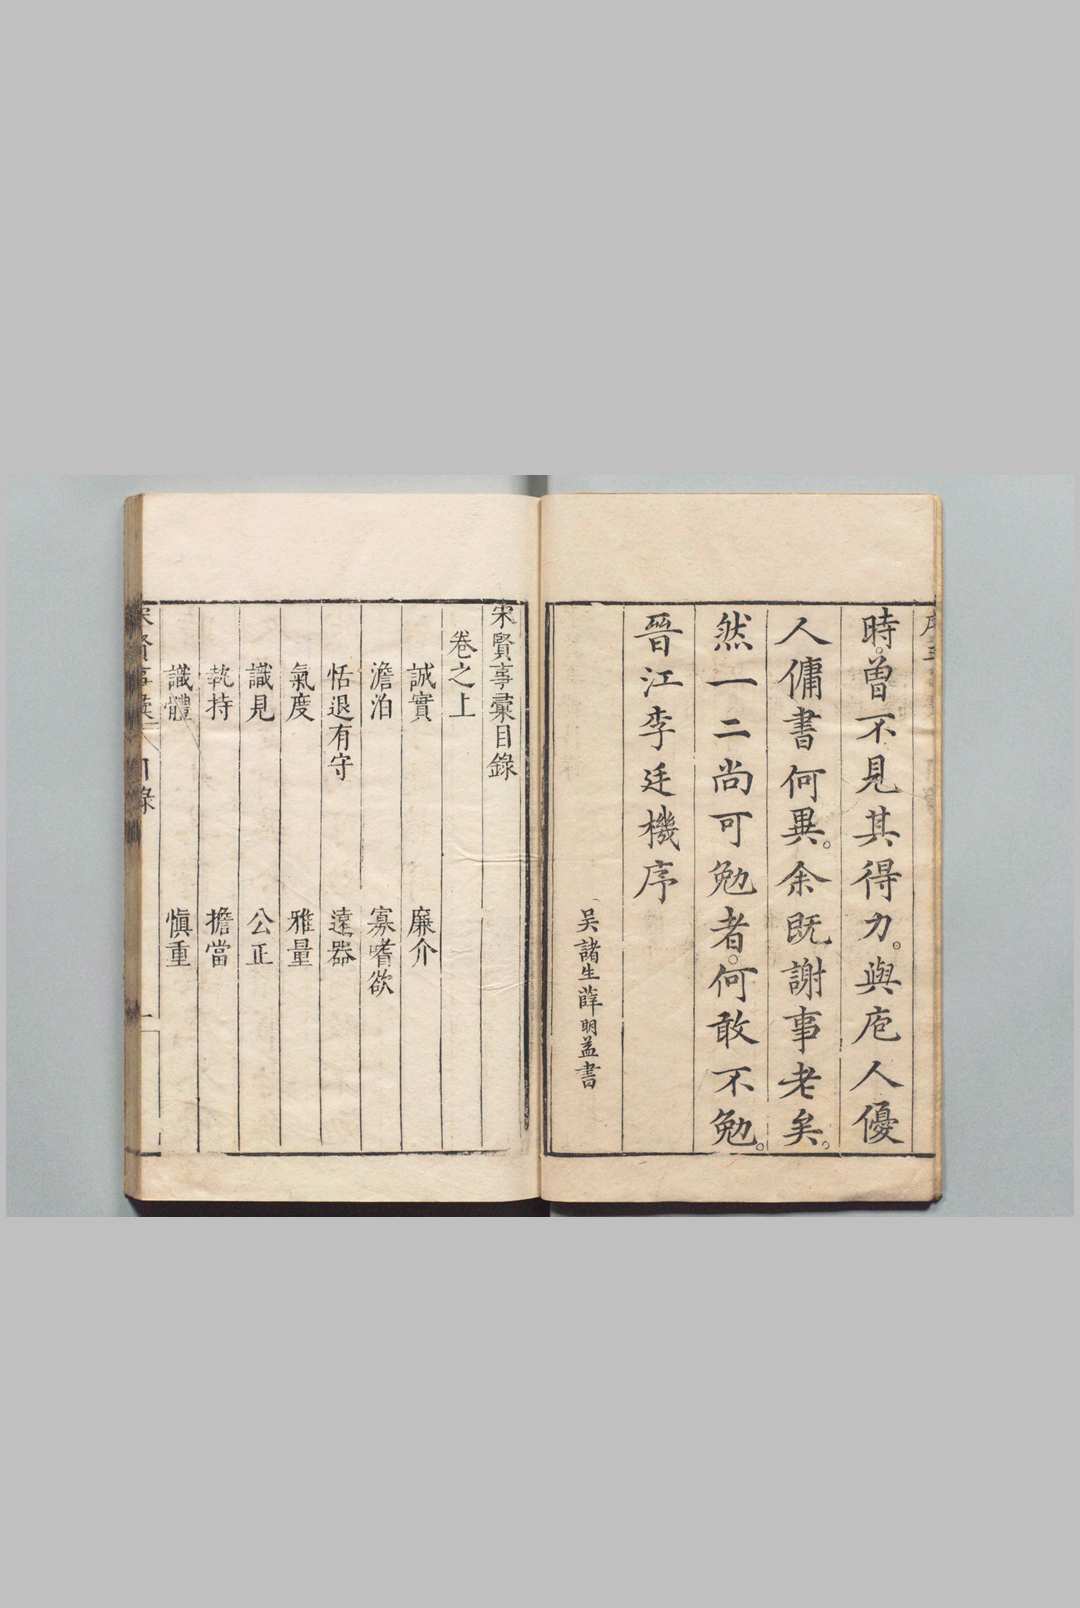 時。曾不見其得力。與庖人優
人傭書何異。余既謝事老矣。
然一二尚可勉者。何敢不勉。
晉江李廷機序
吳諸生薛明益書
宋賢事彙目錄
卷之上
誠實 廉介
澹泊 寡嗜欲
恬退有守 遠器
氣度 雅量
識見 公正
執持 擔當
識體 慎重
宋賢事彙 目錄 一